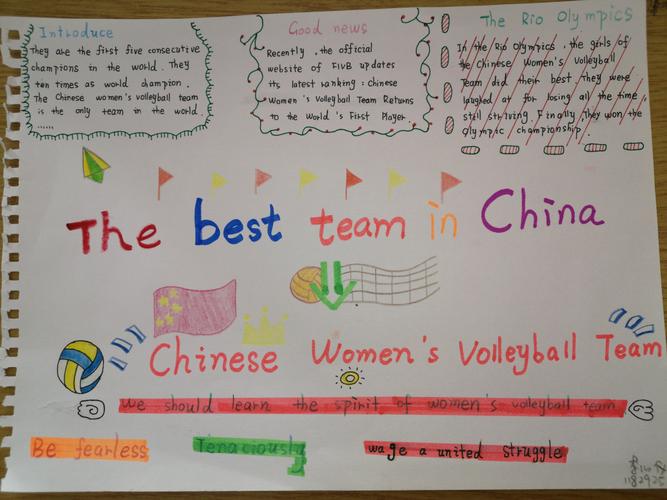 Introduce
They are the first five consecutive
champions in the world. They
ten times as world champion.
The Chinese women's volleyball team
is the only team in the world
......
Good news
Recently, the official
website of FIVB updates
its latest ranking: Chinese
Women's Volleyball Team Returns
to the World's First Player.
The Rio Olympics
In the Rio Olympics, the girls of
the Chinese Women's Volleyball
Team did their best. They were
laughed at for losing all the time,
still striving. Finally They won the
Olympic championship.
The best team in China
Chinese Women's Volleyball Team
We should learn the spirit of women's volleyball team
Be fearless
Tenaciously
wage a united struggle